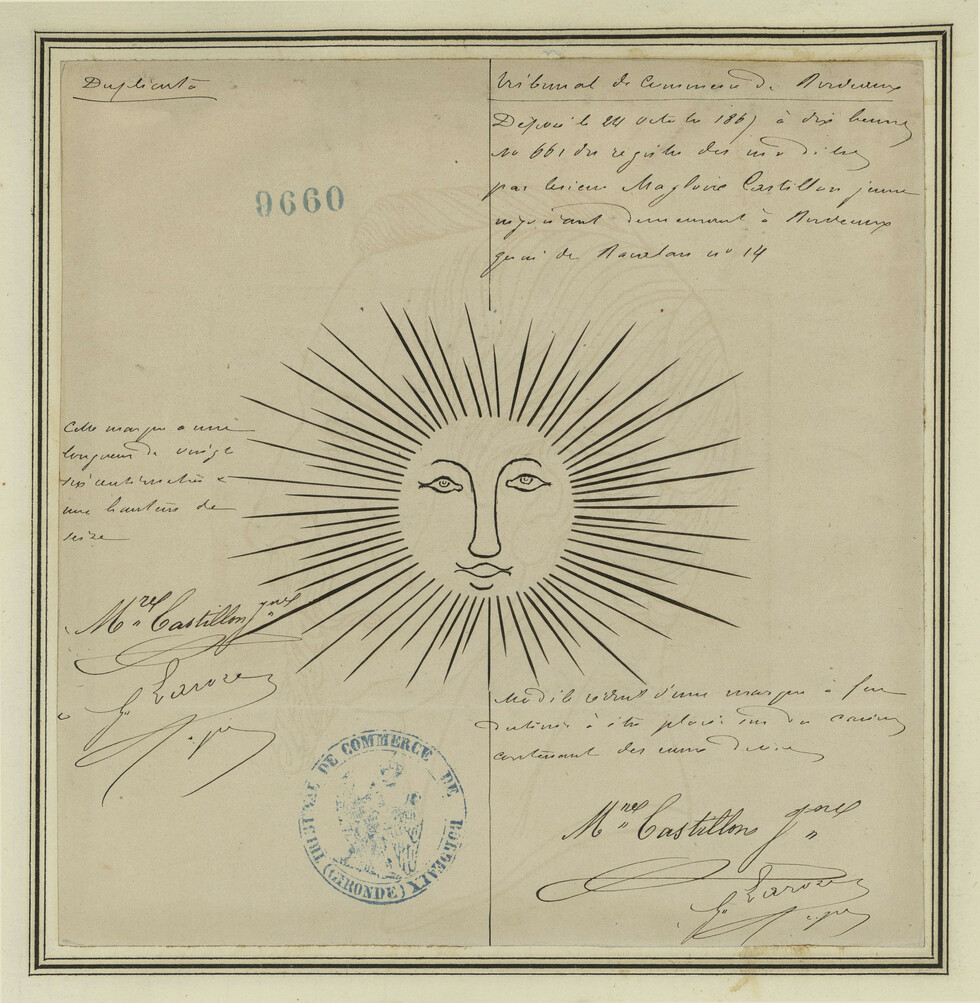 Duplicata
9660
Tribunal de Commerce de Bordeaux
Déposé le 24 octobre 186 à dix heures
No 661 du registre des modèles
par le sieur Magloire Castillon jeune
négociant demeurant à Bordeaux
quai de Bacalan no 14
Cette marque a une
longueur de vingt
six centimètres &
une hauteur de
seize
Castillon
Laroze
Modèle réduit d'une marque à feu
destinée à être placée sur des caisses
contenant des
Castillon
Laroze
TRIBUNAL DE COMMERCE DE BORDEAUX
(GIRONDE)